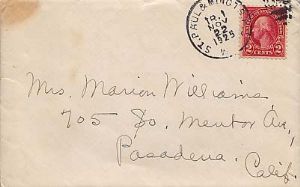 ST. PAUL & MINOT
TR. 1
NOV
22
1925
2 CENTS 2
Mrs. Marion Williams
705 So. Mentor Av,
Pasadena.
Calif.